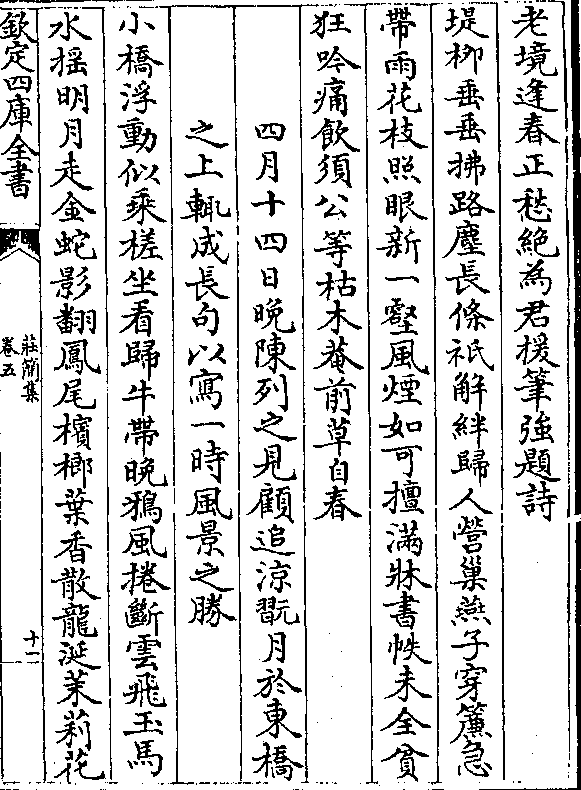 老境逢春正愁絶為君援筆強題詩
堤柳垂垂拂路塵長條祇解絆歸人營巢燕子穿簾急
帶雨花枝照眼新一壑風煙如可擅滿牀書帙未全貧
狂吟痛飲須公等枯木菴前草自春
四月十四日晚陳列之見顧追涼翫月於東橋
之上輒成長句以寫一時風景之勝
小橋浮動似乘槎坐看歸牛帶晚鴉風捲斷雲飛玉馬
水揺明月走金蛇影翻鳳尾檳榔葉香散龍涎茉莉花
欽定四庫全書
莊簡集
卷五
十一